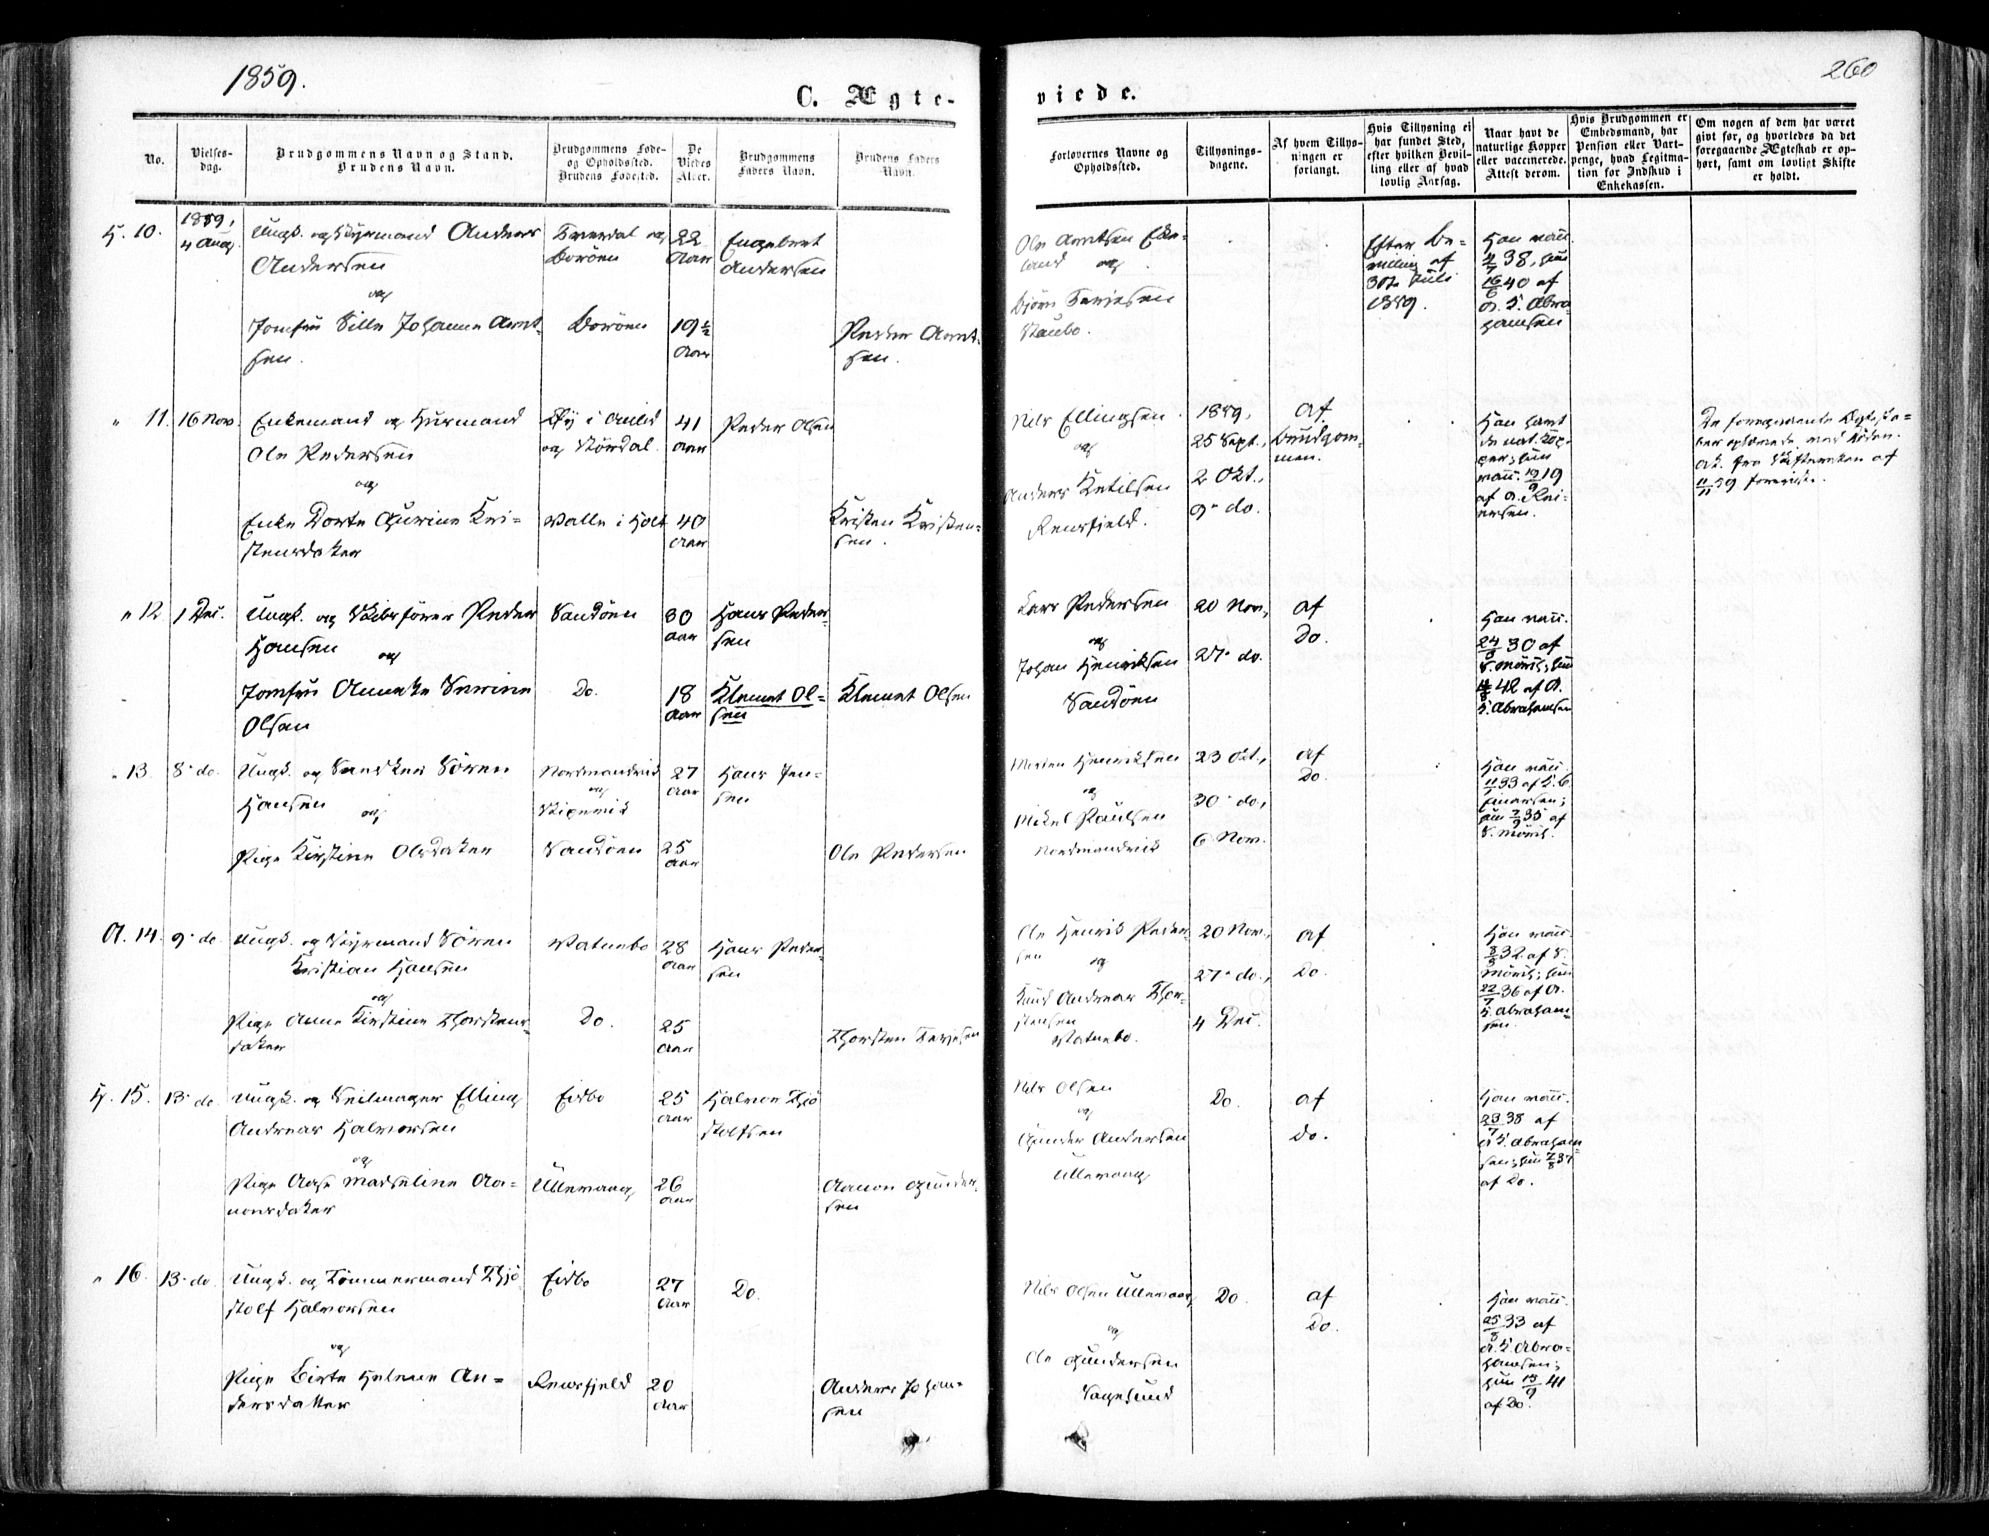 1859.
260
C. Ægte-
viede.
No.
Vielses-
dag.
Brudgommens Navn og Stand.
Brudens Navn.
Brudgommens Føde-
og Opholdssted.
Brudens Fødested.
De
Viedes
Alder.
Brudgommens
Faders Navn.
Brudens Faders
Navn.
Forlovernes Navne og
Opholdssted.
Tillysnings-
dagene.
Af hvem Tillys-
ningen er
forlangt.
Hvis Tillysning ei
har fundet Sted,
efter hvilken Bevil-
ling eller af hvad
lovlig Aarsag.
Naar havt de
naturlige Kopper
eller vaccinerede.
Attest derom.
Hvis Brudgommen er
Embedsmand, har
Pension eller Vart-
penge, hvad Legitima-
tion for Indskud i
Enkekassen.
Om nogen af dem har været
givt før, og hvorledes da det
foregaaende Ægteskab er op-
hørt, samt om lovligt Skifte
er holdt.
H. 10.
1859,
4 Aug.
Ungk. og Styrmand Anders
Andersen
og
Jomfru Sille Johanne Arnt-
sen.
Tverdal og
Borøen
Borøen
22
Aar
19½
Aar
Engebret
Andersen
Peder Arnt-
sen.
Ole Arntsen Eke-
land og
Bjørn Terjesen
Staubo.
Efter Be-
villing af
30te Juli
1859.
Han vacc.
4/7 38, hun
16/6 40 af
A. T. Abra
hamsen
" 11.
16 Nov.
Enkemand og Huusmand
Ole Pedersen
og
Enke Dorte Gurine Kri-
stensdater
og Nørdal.
Valle i Holt
41
Aar
40
Aar
Peder Olsen
Kristen Kristen-
sen.
Nils Ellingsen
og
Anders Ketilsen
Rensfjeld.
1859,
25 Sept.,
2 Okt.,
9 do.
af
Brudgom-
men.
Han havt
de nat. Kop-
per; hun
vacc. 19/9 19
af A. Rei-
ersen.
De foregaaende Ægteska-
ber ophævede ved Døden.
At. fra Skifteretten af
11/11 59 foreviist.
" 12
1 Dec.
Ungk. og Skibsfører Peder
Hansen
og
Jomfru Anneke Severine
Olsen
Sandøen
Do.
30
Aar
18
Aar
Hans Peder-
sen
Klemet Ol-
sen
Klemet Olsen
Lars Pedersen
og
Johan Henriksen
Sandøen
20 Nov.,
27 do.
af
Do.
Han vacc.
24/8 30 af
S. Mörch; hun
4/8 42 af A.
T. Abrahamsen
" 13.
8 do.
Ungk. og Snedker Sören
Hansen
og
Pige Kirstine Olsdater
Nordmandvik
og
Kigevik
Sandøen
27
Aar
25
Aar
Hans Jen-
sen
Ole Pedersen
Morten Henriksen
og
Mikel Paulsen
Nordmandvik
23 Okt.,
30 do.,
6 Nov.
af
Do.
Han vacc.
S. Mörch.
A. 14.
9 do.
Ungk. og Styrmand Sören
Kristian Hansen
og
Pige Anne Kirstine Thorstens-
dater
Vatnebo
Do.
28
Aar
25
Aar
Hans Peder-
sen
Thorsten Terjesen
Ole Henrik Peder-
sen
og
Knud Andreas Thor-
stensen
Vatnebo.
20 Nov.,
27 do.,
4 Dec.
af
Do.
Han vacc.
8/8 32 af S.
Mörch; hun
22/7 36 af A.
T. Abraham-
sen.
H. 15.
13 do.
Ungk. og Seilmager Elling
Andreas Halvorsen
og
Pige Aase Madseline Aa-
nonsdater
Eidbo
Ullevaag
25
Aar
26
Aar
Halvor Thjø
stolfsen
Aanon Gunder-
sen
Nils Olsen
og
Gunder Andersen
Ullevaag
Do.
af
Do.
Han vacc.
23/7 38 af
A. T. Abraham-
sen; hun 7/8 37
af Do.
" 16.
13 do.
Ungk. og Tømmermand Thjø
stolf Halvorsen
og
Pige Birte Helene An-
dersdatter
Eidbo
Rensfjeld
27
Aar
20
Aar
Do.
Anders Johan-
sen
Nils Olsen Ullevaag
og
Ole Gundersen
Sagesund
Do.
af
Do.
Han vacc.
25/8 33 af
A. T. Abra-
hamsen;
hun 19/9 41
af Do.